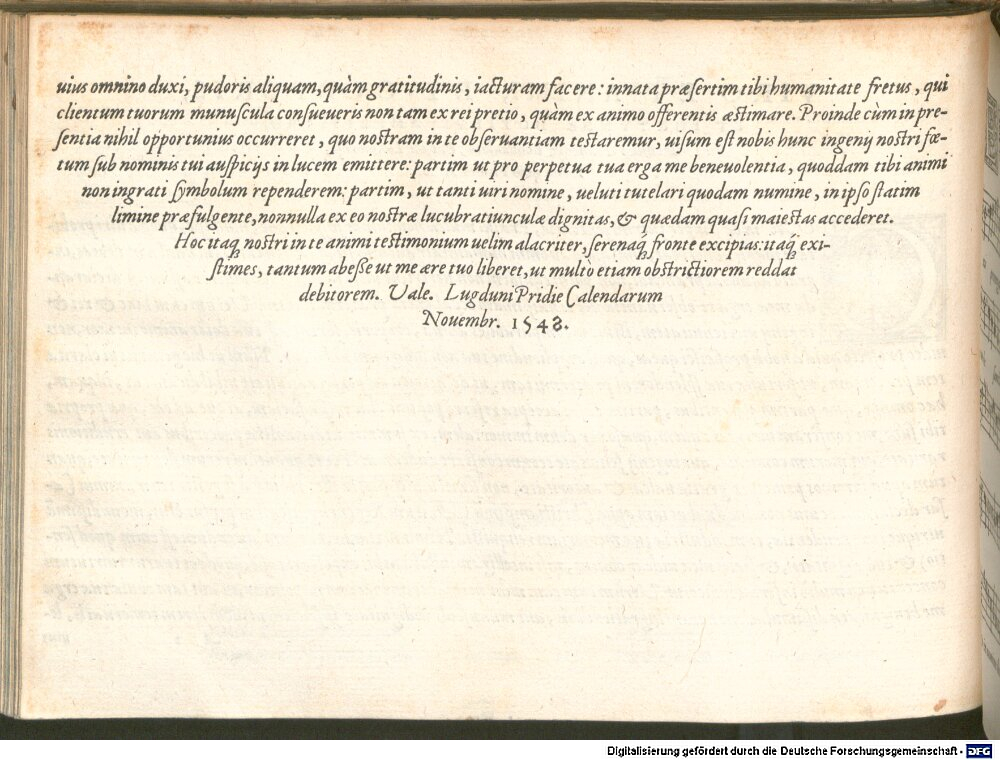 uius omnino duxi, pudoris aliquam, quàm gratitudinis, iacturam facere: innata præsertim tibi humanitate fretus, qui
clientum tuorum munuscula consueueris non tam ex rei pretio, quàm ex animo offerentis æstimare. Proinde cùm in præ-
sentia nihil opportunius occurreret, quo nostram in te obseruantiam testaremur, uisum est nobis hunc ingenij nostri fœ-
tum sub nominis tui auspicijs in lucem emittere: partim ut pro perpetua tua erga me beneuolentia, quoddam tibi animi
non ingrati symbolum rependerem: partim, ut tanti uiri nomine, ueluti tutelari quodam numine, in ipso statim
limine præfulgente, nonnulla ex eo nostræ lucubratiunculæ dignitas, & quædam quasi maiestas accederet.
Hoc itaq; nostri in te animi testimonium uelim alacriter, serenaq; fronte excipias: itaq́; exi-
stimes, tantum abesse ut me ære tuo liberet, ut multò etiam obstrictiorem reddat
debitorem. Vale. Lugduni Pridie Calendarum
Nouembr. 1548.
Digitalisierung gefördert durch die Deutsche Forschungsgemeinschaft - DFG